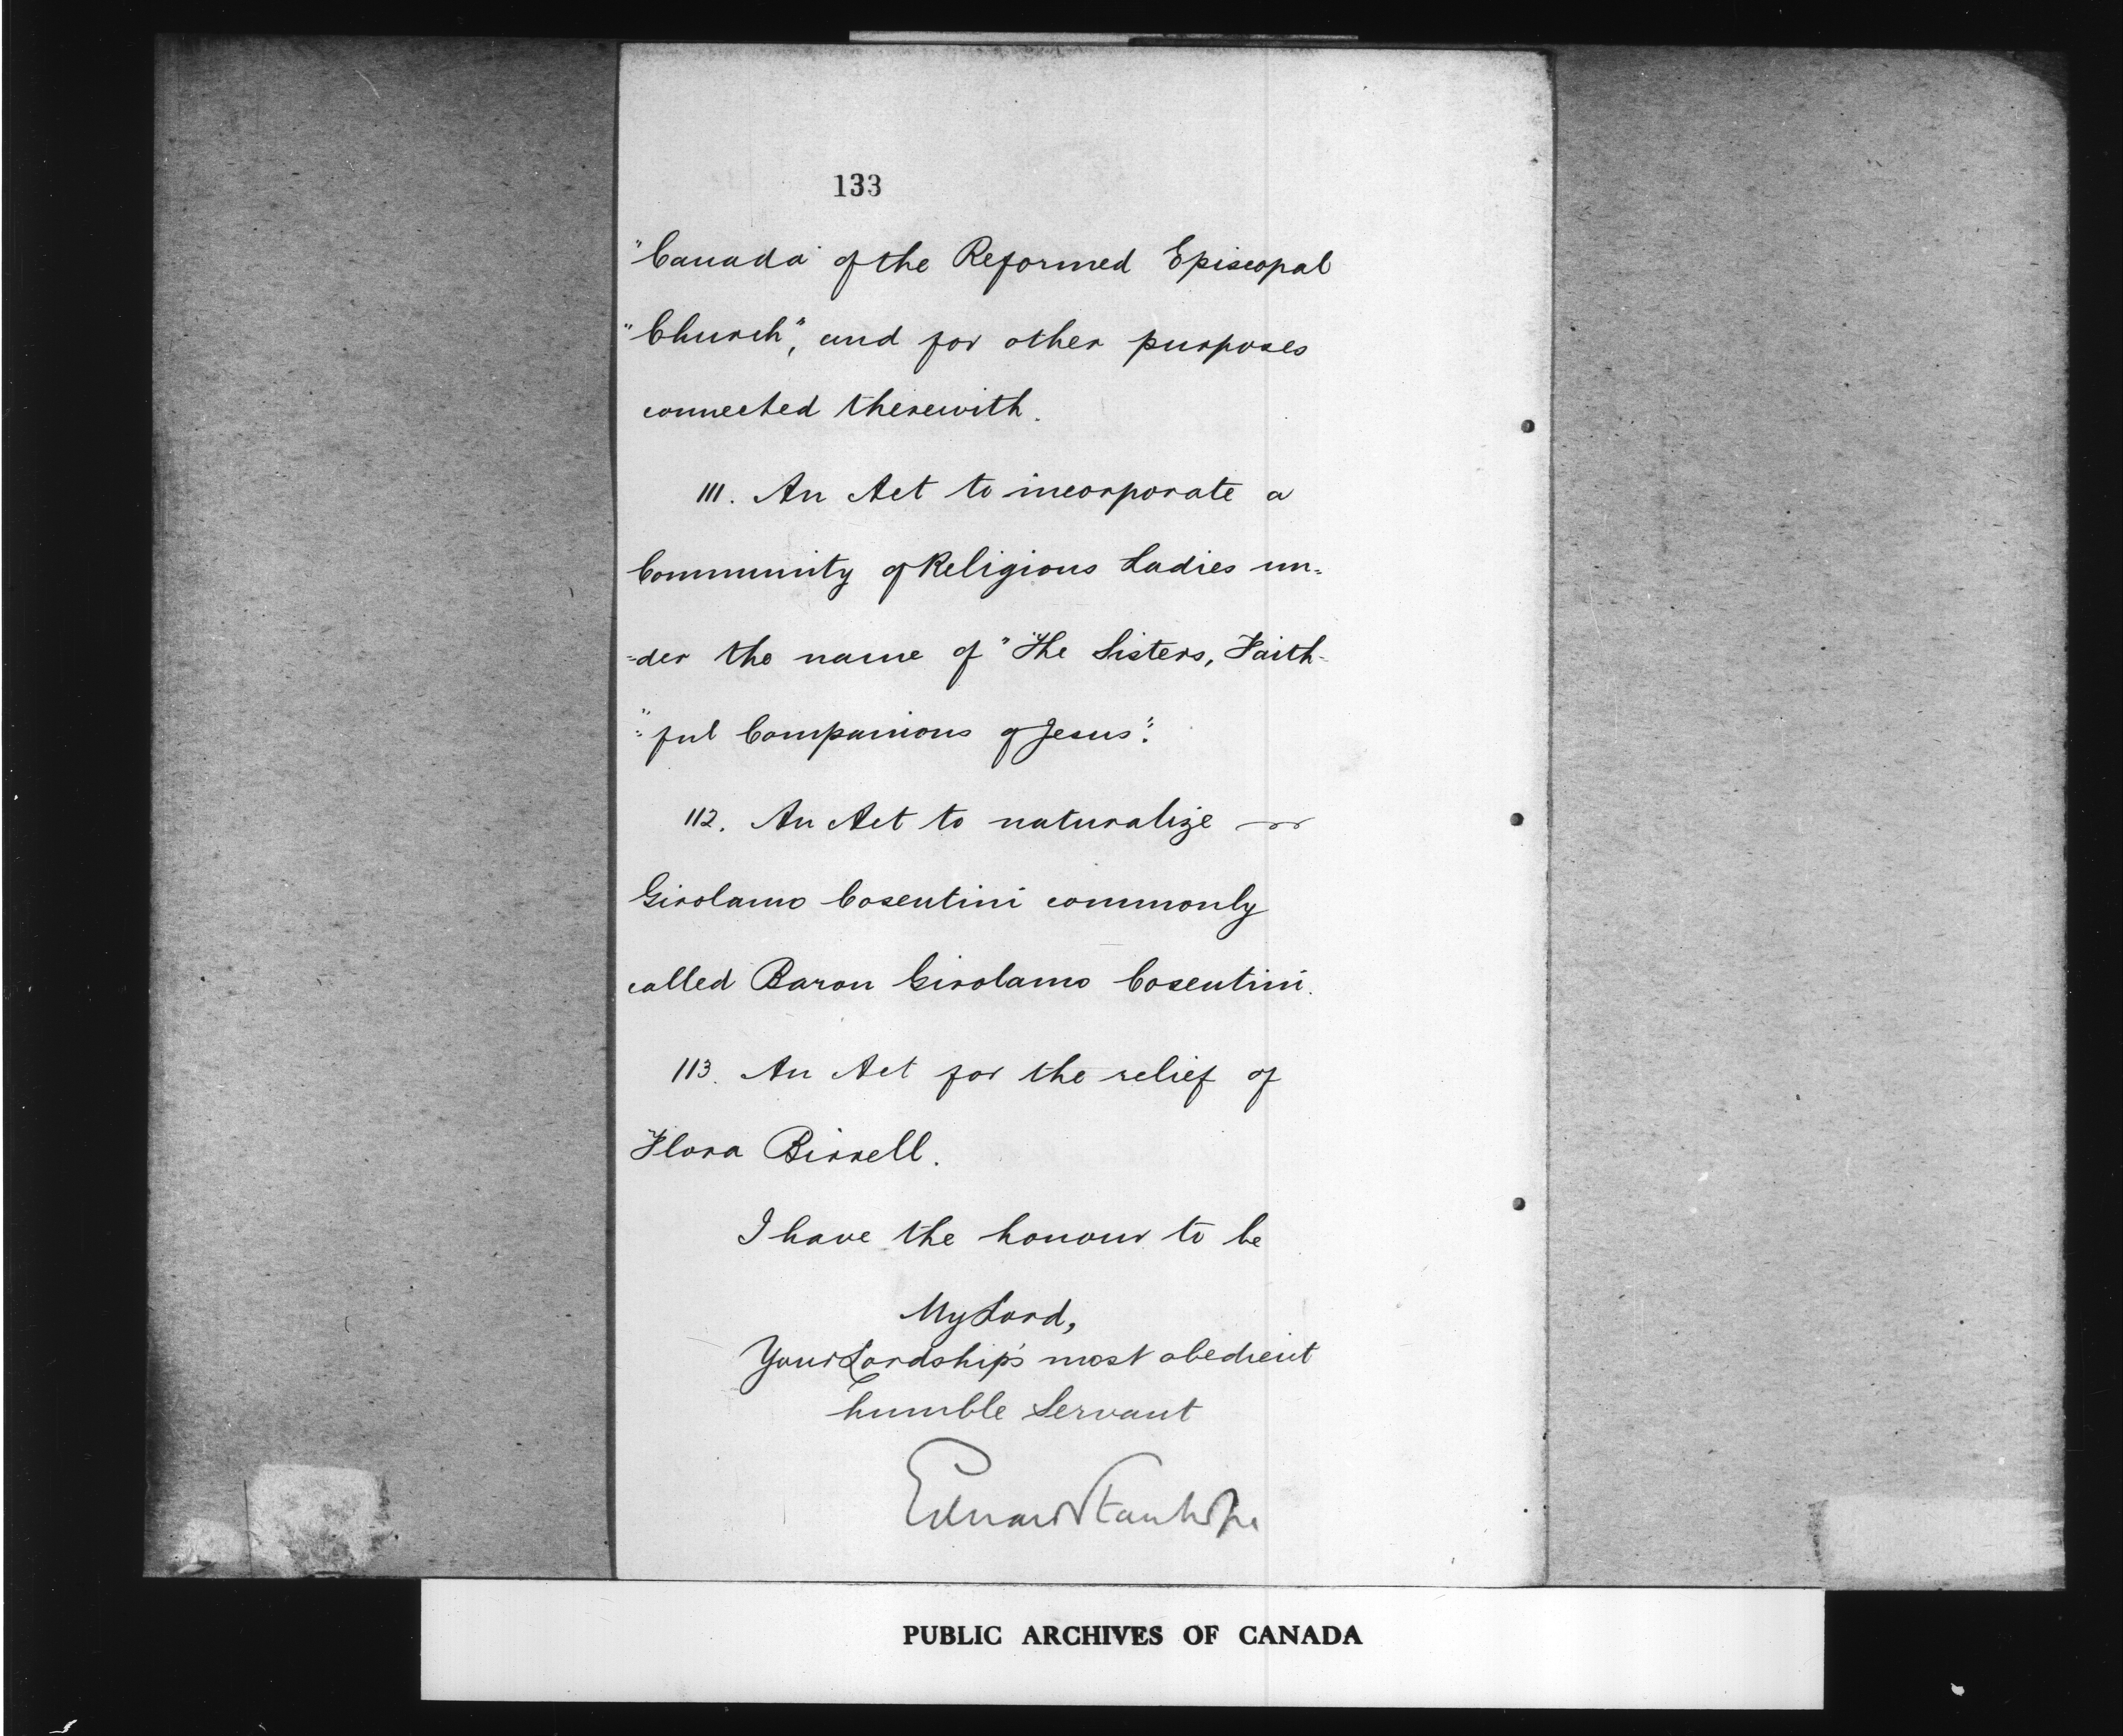 133
"Canada of the Reformed Episcopal
"Church", and for other purposes
connected therewith.
111. An Act to incorporate a
Community of Religious Ladies un-
-der the name of "The Sisters, Faith-
"-ful Companions of Jesus".
112. An Act to naturalize
Girolamo Cosentini commonly
called Baron Girolamo Cosentini.
113. An Act for the relief of
Flora Birrell.
I have the honour to be
My Lord,
Your Lordship's most obedient
humble Servant
Edward Stanhope
PUBLIC ARCHIVES OF CANADA